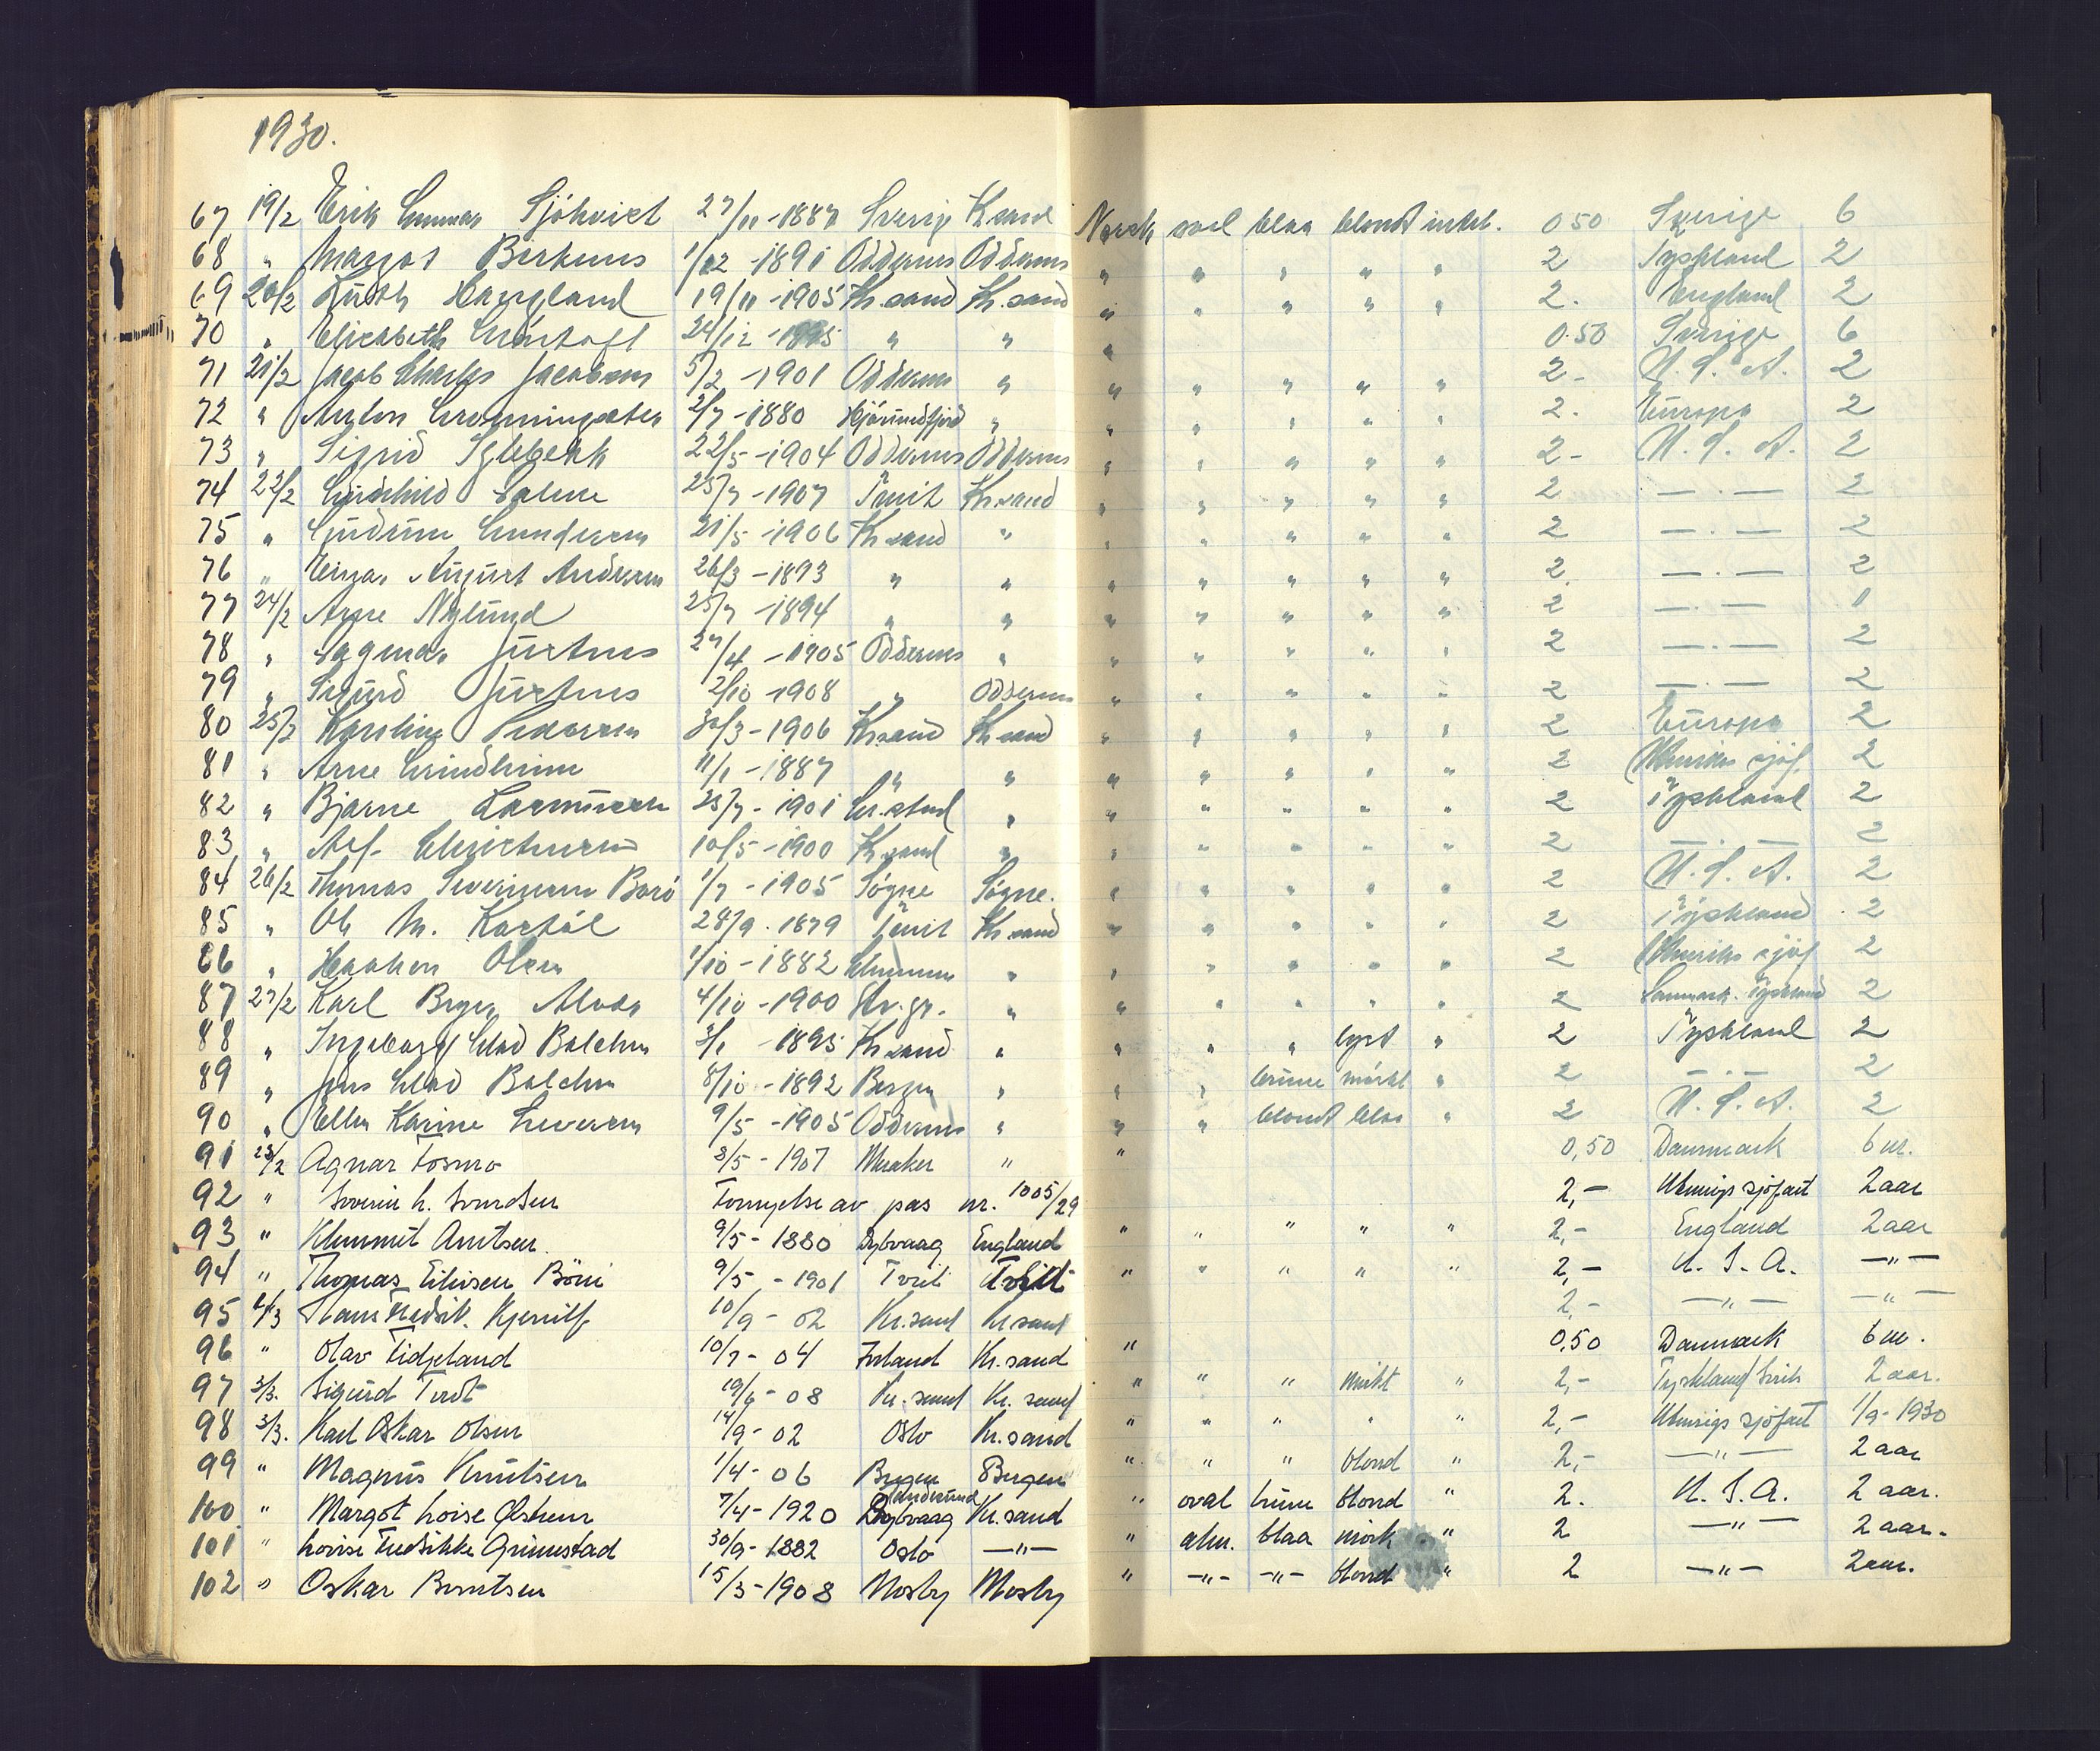 1930.
67 19/2 Erik Gunnar Sjökvist 27/11-1887 Sverige Kr.sand Norsk oval blaa blondt intet. 0.50 Sverige 6
68 " Margot Birkenes 1/12-1891 Oddernes Oddernes " " " " " 2 Tyskland 2
69 20/2 Ruth Haugland 19/11-1905 Kr.sand Kr.sand " " " " " 2. England 2
70 " Elisabeth 24/12 " " " 0.50 Sverige 6
71 21/2 Jacob Charles Jacobsen 5/2-1901 Oddernes " " " " " " 2- U.S.A. 2
72 " Anton 2/7-1880 Hjörundfjord " " " " " " 2. Europa 2
73 " Sigrid Eglebekk 22/5-1904 Oddernes Oddernes " " " " " 2- U.S.A. 2
74 22/2 25/7-1907 Tveit Kr.sand " " " " " 2 —.— 2
75 " Gudrun Gundersen 21/5-1906 Kr.sand " " " " " " 2 —.— 2
76 " Einar August Andersen 26/3-1893 " " " " " " " 2. —.— 2
77 24/2 Arne Nylund 25/7-1894 " " " " " " " 2 —.— 1
78 " Dagmar Justnes 27/4-1905 Oddernes " " " " " " 2 —.— 2
79 " Sigurd Justnes 2/10-1908 " Oddernes " " " " " 2 —.— 2
80 25/2 Karoline Pedersen 30/3-1906 Kr.sand Kr.sand " " " " " 2 Europa 2
81 " Arne Grindheim 11/1-1887 " " " " " " " 2 Utenriks sjöf. 2
82 " Bjarne Rasmussen 25/7-1901 Gr.stad " " " " " " 2 Tyskland 2
83 " Alf Christensen 10/5-1900 Kr.sand " " " " " " 2 —.— 2
84 26/2 Thomas Severinsen Borö 1/7-1905 Søgne Søgne. " " " " " 2 U.S.A. 2
85 " Ole M. Kostöl 28/9.1879 Tveit Kr.sand " " " " " 2 Tyskland 2
86 " Haakon Olsen 1/10-1882 " " " " " " 2 Utenriks sjöf 2
87 27/2 Karl Birger 4/10-1900 " " " " " " 2 Danmark. Tyskland 2
88 " Ingeborg Glad Balchen 3/1-1895 Kr.sand " " " " lyst " 2 Tyskland 2
89 " Jens Glad Balchen 8/10-1892 Bergen " " " brune mörkt " 2 —.— 2
90 " Ellen Karine Syversen 9/5-1905 Oddernes " " " blondt blaa " 2 U.S.A. 2
91 28/2 Agnar Fosmo 8/5-1907 Meraker " " 0,50 Danmark 6 m.
92 " Severin G. Svendsen Fornyelse av pas nr. 1005/29 2,- Utenrigs sjöfart 2 aar
93 " Klemmet Arntsen. 9/5-1880 Dybvaag England " " " " " 2,- England 2 aar
94 " Thomas Eilivsen Böni 9/5-1901 Tveit Tveit " " " " " 2,- U.S.A. —"—
95 4/3 Hans Fredrik. Kjerulf 10/9-02 Kr.sand Kr.sand 2,- —"— —"—
96 " Olav Fidjeland 10/7-04 Iveland Kr.sand " 0,50 Danmark 6 m.
97 3/3. Sigurd Tvedt 19/6-08 Kr.sand Kr.sand " " " mörkt " 2,- Tyskland/ 2 aar.
98 3/3. Karl Oskar Olsen 14/9-02 Oslo Kr.sand " " " " " 2,- Utenrigs sjöfart 1/9-1930
99 " Magnus Knutsen 1/4-06 Bergen Bergen " " " blond " 2,- —"— 2 aar
100 " Margot Lovise Olsen 7/4-1920 Dybvaag Kr.sand " oval brune blond " 2. U.S.A. 2 aar.
101 " Lovise Fredrikke Grimestad 30/9-1882 Oslo —"— " alm. blaa mörk " 2 —"— 2 aar.
102 " Oskar Berntsen 15/3-1908 Mosby Mosby " —"— —"— blond " 2 —"— 2 aar.